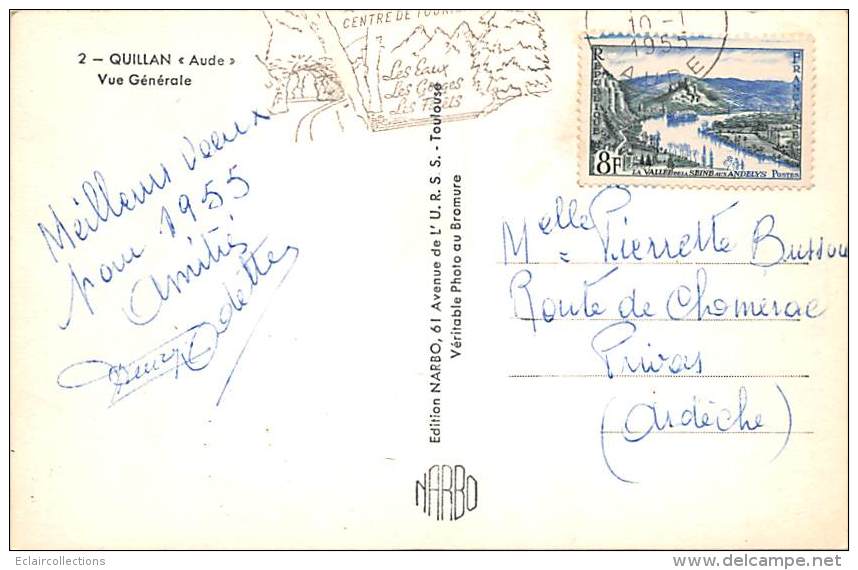 2 – QUILLAN « Aude »
Vue Générale
CENTRE DE
Les Eaux
Les Gorges
Les Forêts
10-1
1955
AUDE
RÉPUBLIQUE
FRANÇAISE
8F
LA VALLÉE DE LA SEINE AUX ANDELYS POSTES
Meilleurs Voeux
pour 1955
Amitiés
Odette
Edition NARBO, 61 Avenue de L'U.R.S.S. - Toulouse
Véritable Photo au Bromure
NARBO
Melle Pierrette Bussou
Route de Chomerac
Privas
(Ardèche)
Eclaircollections
delcampe.net